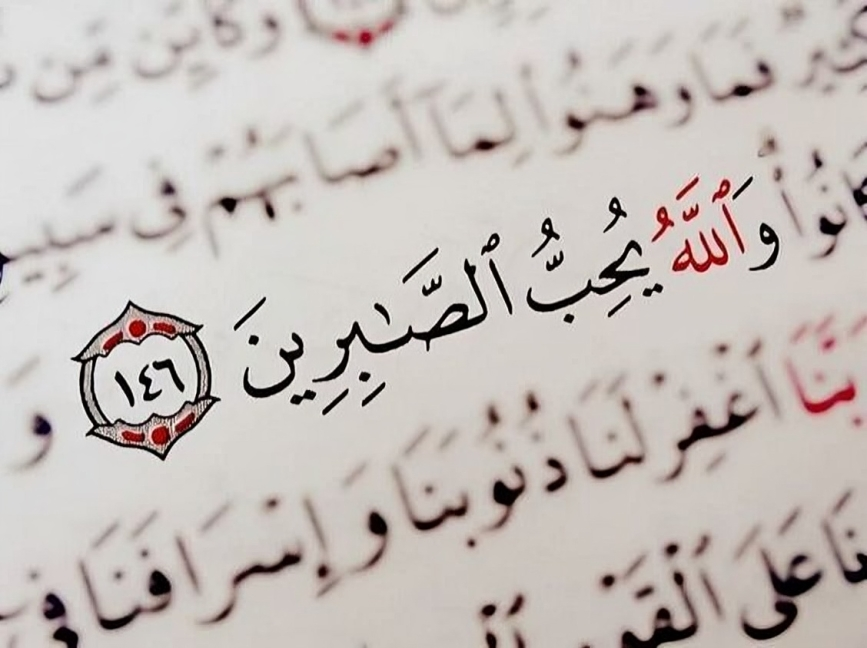 وَكَأَيِّن مِّن
كَثِيرٌ فَمَا وَهَنُوا۟ لِمَآ أَصَابَهُمْ فِى سَبِيلِ
كَانُوا۟ وَٱللَّهُ يُحِبُّ ٱلصَّٰبِرِينَ ١٤٦ وَ
رَبَّنَا ٱغْفِرْ لَنَا ذُنُوبَنَا وَإِسْرَافَنَا فِىٓ
عَلَى ٱلْقَوْمِ